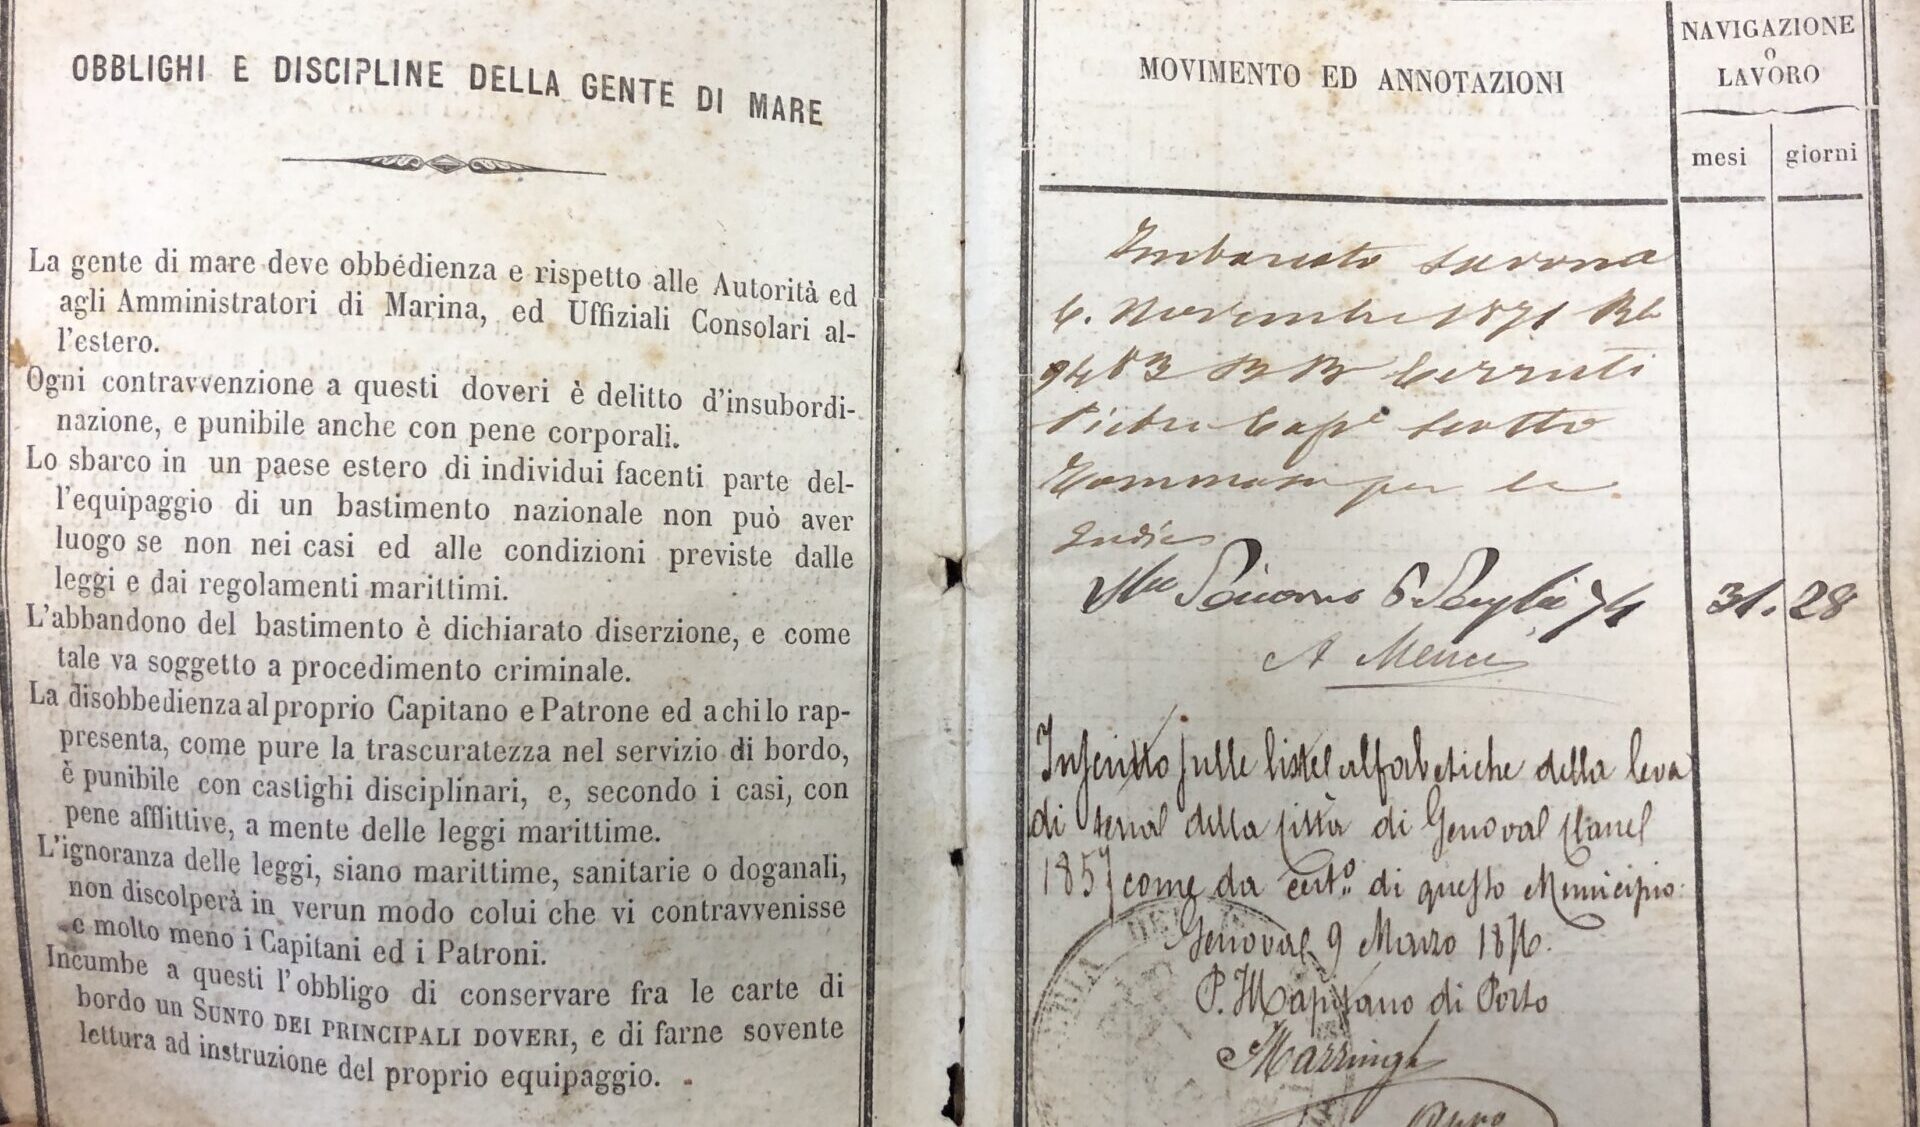 OBBLIGHI E DISCIPLINE DELLA GENTE DI MARE
La gente di mare deve obbedienza e rispetto alle Autorità ed
agli Amministratori di Marina, ed Uffiziali Consolari al-
l'estero.
Ogni contravvenzione a questi doveri è delitto d'insubordi-
nazione, e punibile anche con pene corporali.
Lo sbarco in un paese estero di individui facenti parte del-
l'equipaggio di un bastimento nazionale non può aver
luogo se non nei casi ed alle condizioni previste dalle
leggi e dai regolamenti marittimi.
L'abbandono del bastimento è dichiarato diserzione, e come
tale va soggetto a procedimento criminale.
La disobbedienza al proprio Capitano e Patrone ed a chi lo rap-
presenta, come pure la trascuratezza nel servizio di bordo,
è punibile con castighi disciplinari, e, secondo i casi, con
pene afflittive, a mente delle leggi marittime.
L'ignoranza delle leggi, siano marittime, sanitarie o doganali,
non discolperà in verun modo colui che vi contravvenisse
e molto meno i Capitani ed i Patroni.
Incumbe a questi l'obbligo di conservare fra le carte di
bordo un SUNTO DEI PRINCIPALI DOVERI, e di farne sovente
lettura ad instruzione del proprio equipaggio.
MOVIMENTO ED ANNOTAZIONI
NAVIGAZIONE
O
LAVORO
mesi giorni
Imbarcato Savona
6. Novembre 1871
9483 Cerruti
Pietro Cap.e Scotto
Tommaso per le
Indie
74 31. 28
Inscritto sulle liste alfabetiche della leva
di terra della città di Genova classe
1857 come da cert.o di questo Municipio.
Genova 9 Marzo 1876.
Capitano di Porto